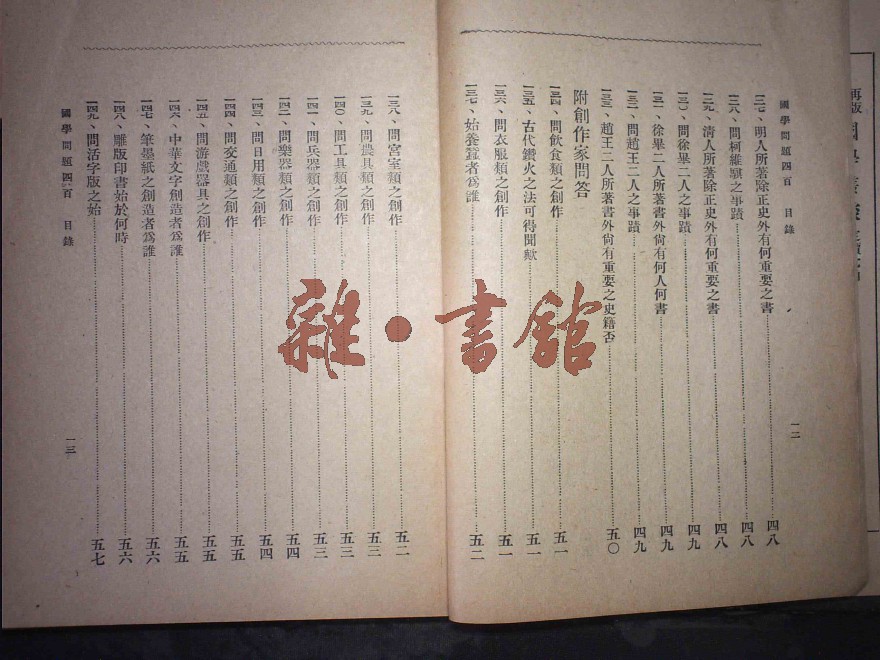 再版
國學問題四百 目錄
一二
一二七、明人所著除正史外有何重要之書……四八
一二八、問柯維騏之事蹟……四八
一二九、清人所著除正史外有何重要之書……四八
一三〇、問徐畢二人之事蹟……四九
一三一、徐畢二人所著書外尚有何人何書……四九
一三二、問趙王二人之事蹟……四九
一三三、趙王二人所著書外尚有重要之史籍否……五〇
附創作家問答
一三四、問飲食類之創作……五一
一三五、古代鑽火之法可得聞歟……五一
一三六、問衣服類之創作……五一
一三七、始養蠶者爲誰……五二
一三八、問宮室類之創作……五二
一三九、問農具類之創作……五三
一四〇、問工具類之創作……五三
一四一、問兵器類之創作……五三
一四二、問樂器類之創作……五四
一四三、問日用類之創作……五四
一四四、問交通類之創作……五五
一四五、問游戲器具之創作……五五
一四六、中華文字創造者爲誰……五五
一四七、筆墨紙之創造者爲誰……五六
一四八、雕版印書始於何時……五六
一四九、問活字版之始……五七
國學問題四百 目錄
一三
雜·書館